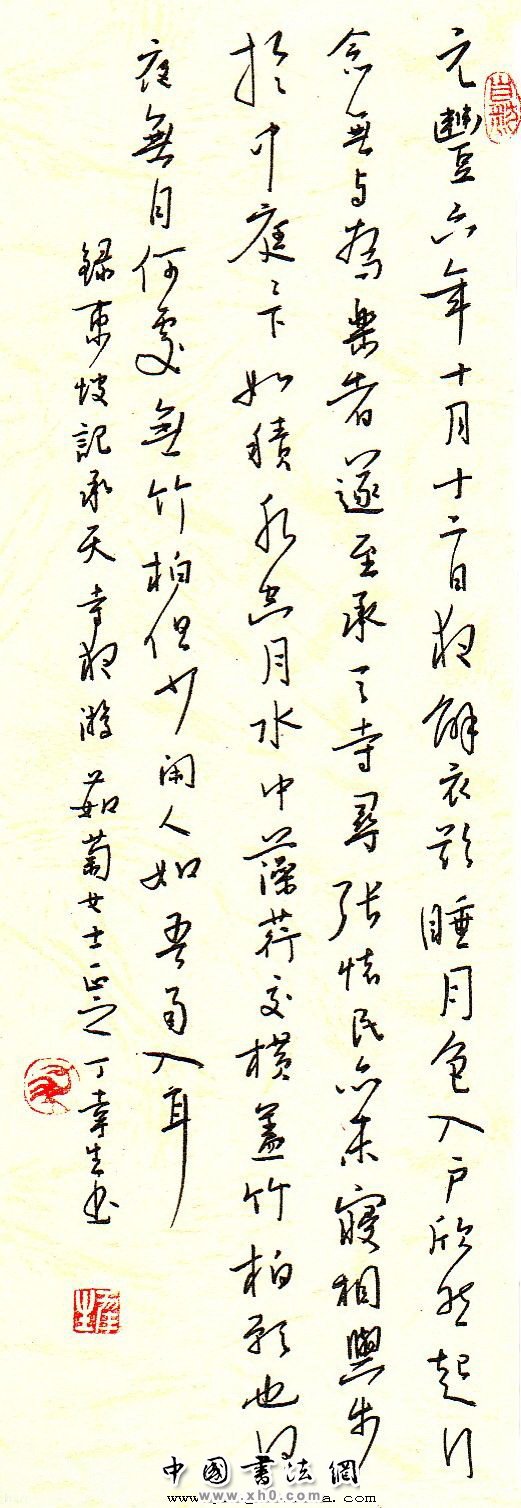 元豐六年十月十二日夜解衣欲睡月色入戶欣然起行
念無与為樂者遂至承天寺尋張懷民亦未寢相與步
於中庭々下如積水空月水中藻荇交橫蓋竹柏影也何
夜無月何處無竹柏但少閑人如吾兩人耳
錄東坡記承天寺夜游 茹菊女士正之 丁幸生书
中國書法網
www.xh0.com